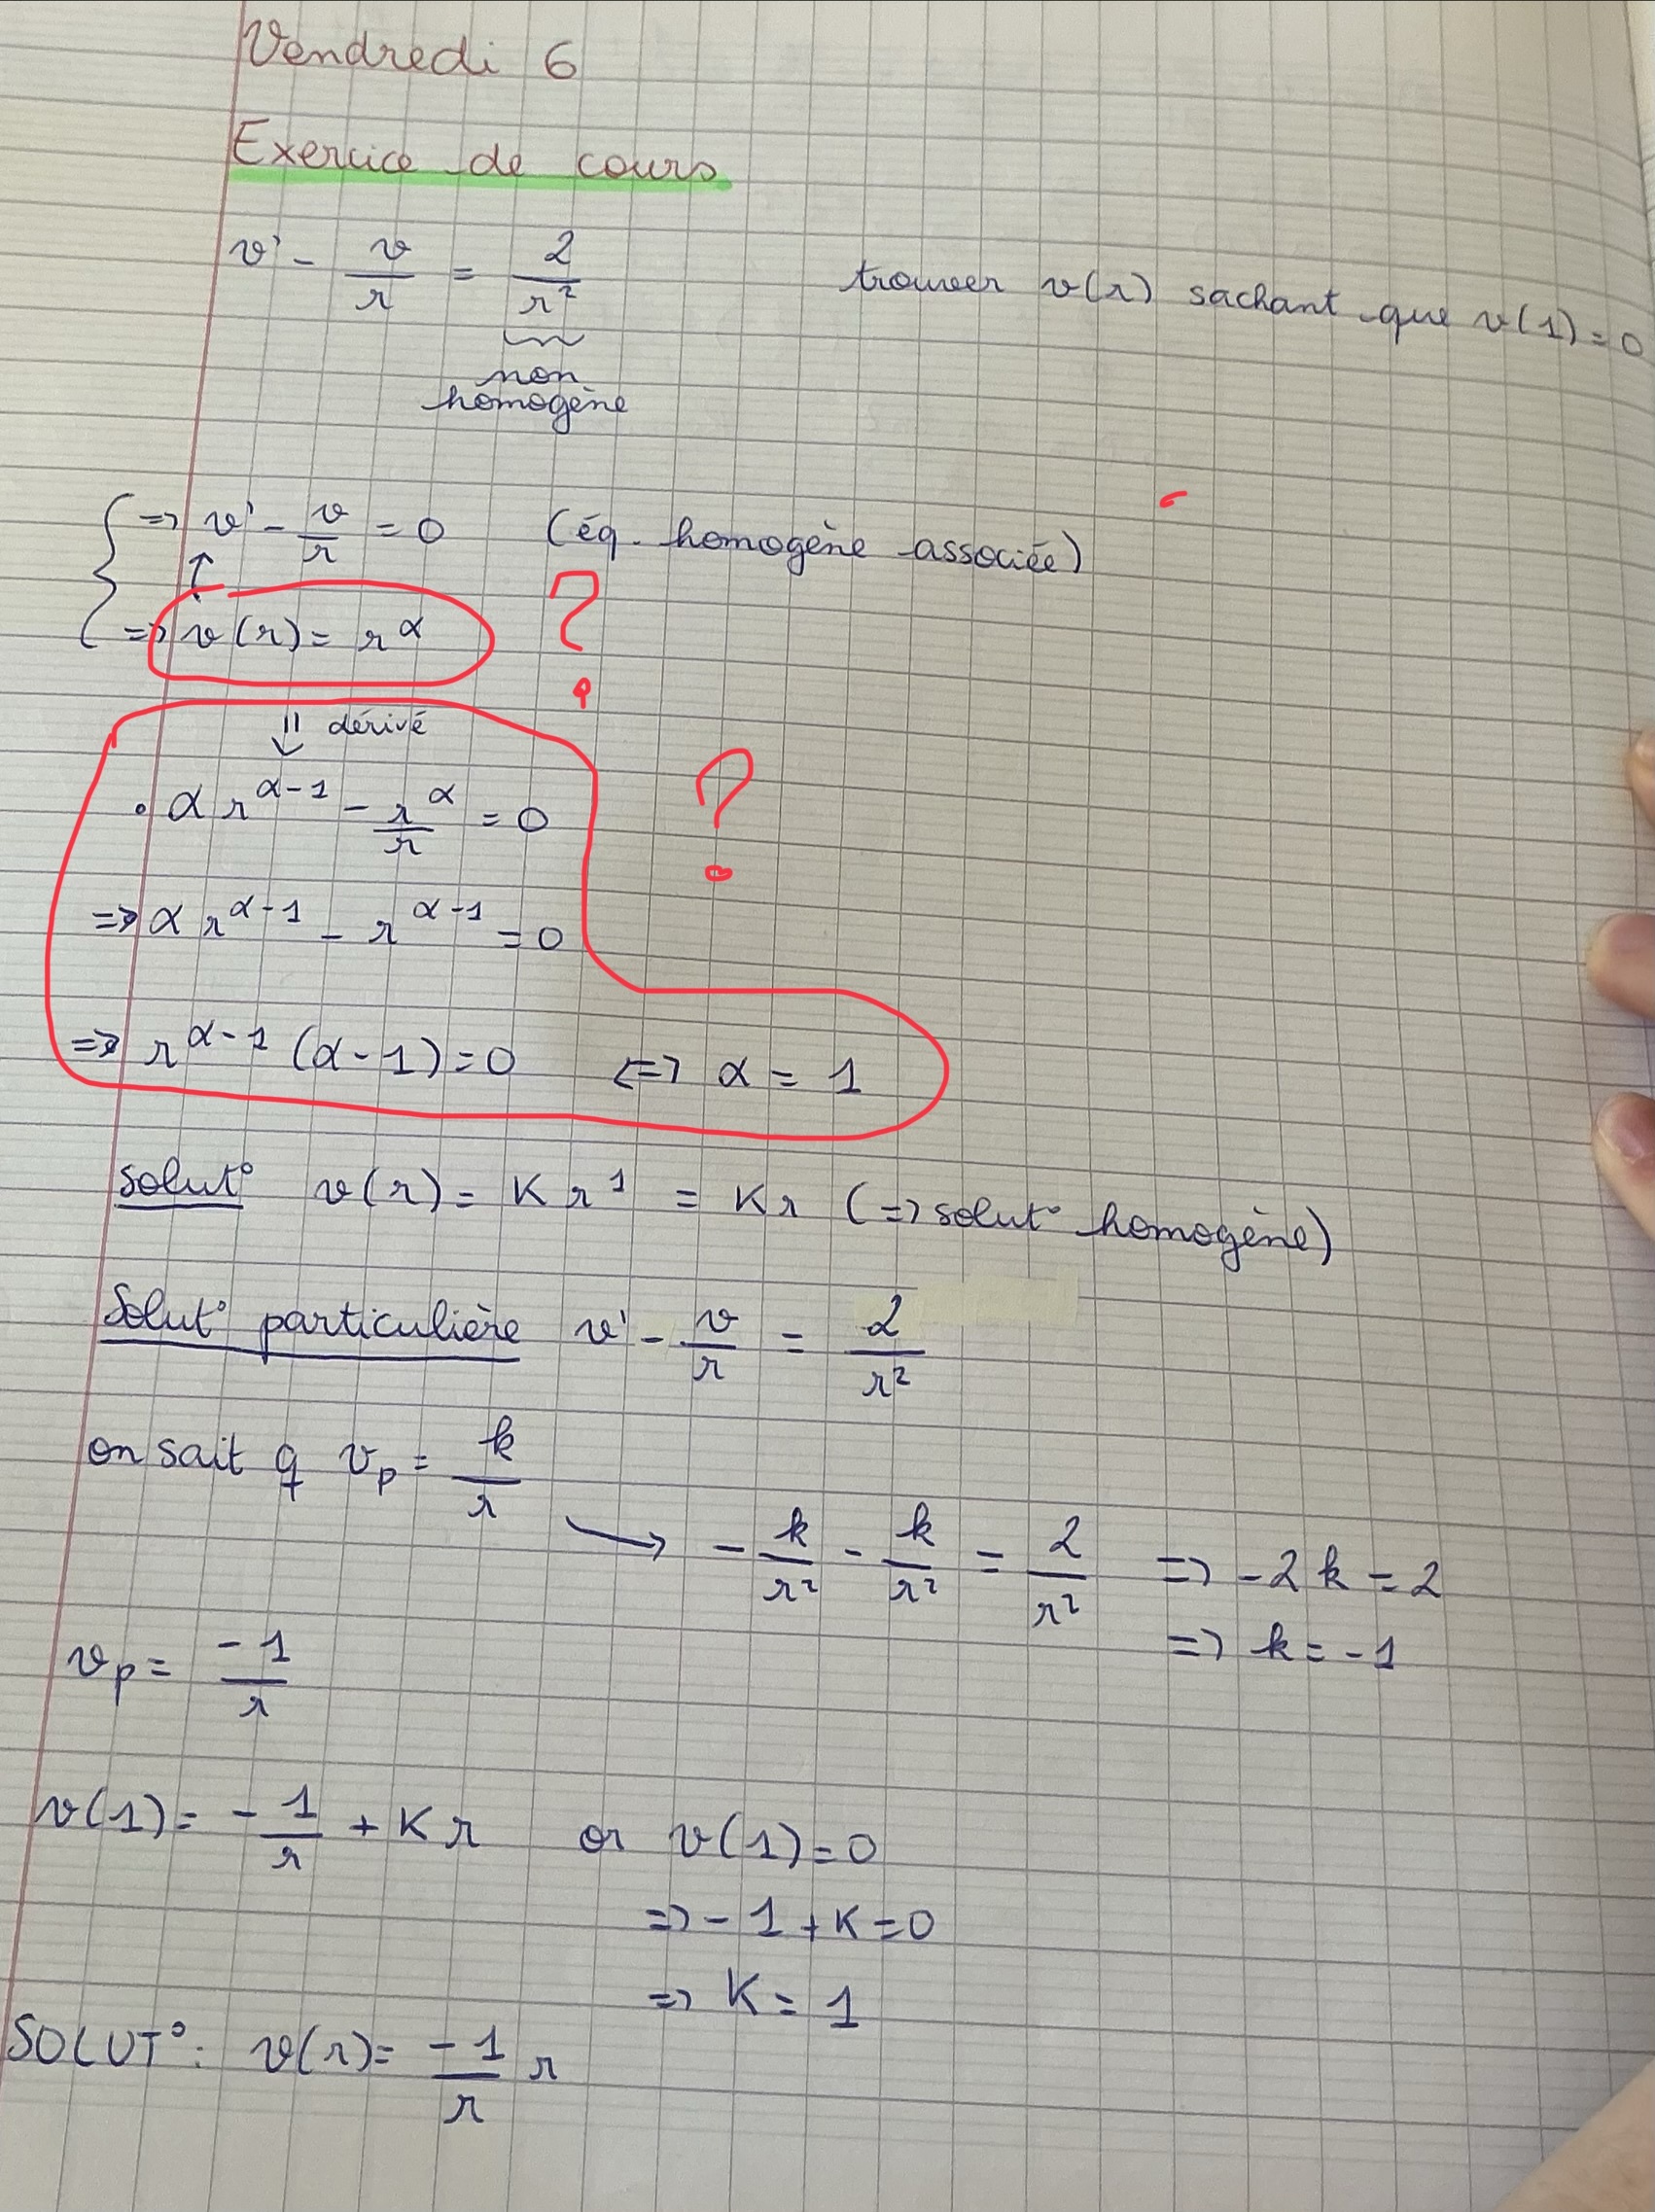 Vendredi 6
Exercice de cours
v' - v/r = 2/r² trouver v(r) sachant que v(1) = 0
non
homogène
=> v' - v/r = 0 (éq. homogène associée)
↑
=> v(r) = r^α ?
⇓ dérivé
• α r^(α-1) - r^α/r = 0 ?
=> α r^(α-1) - r^(α-1) = 0
=> r^(α-1) (α-1) = 0 <=> α = 1
solut° v(r) = K r^1 = Kr (=> solut° homogène)
Solut° particulière v' - v/r = 2/r²
on sait q v_p = k/r
→ - k/r² - k/r² = 2/r² => -2k = 2
=> k = -1
v_p = -1/r
v(1) = - 1/r + K r or v(1) = 0
=> - 1 + K = 0
=> K = 1
SOLUT° : v(r) = -1/r r